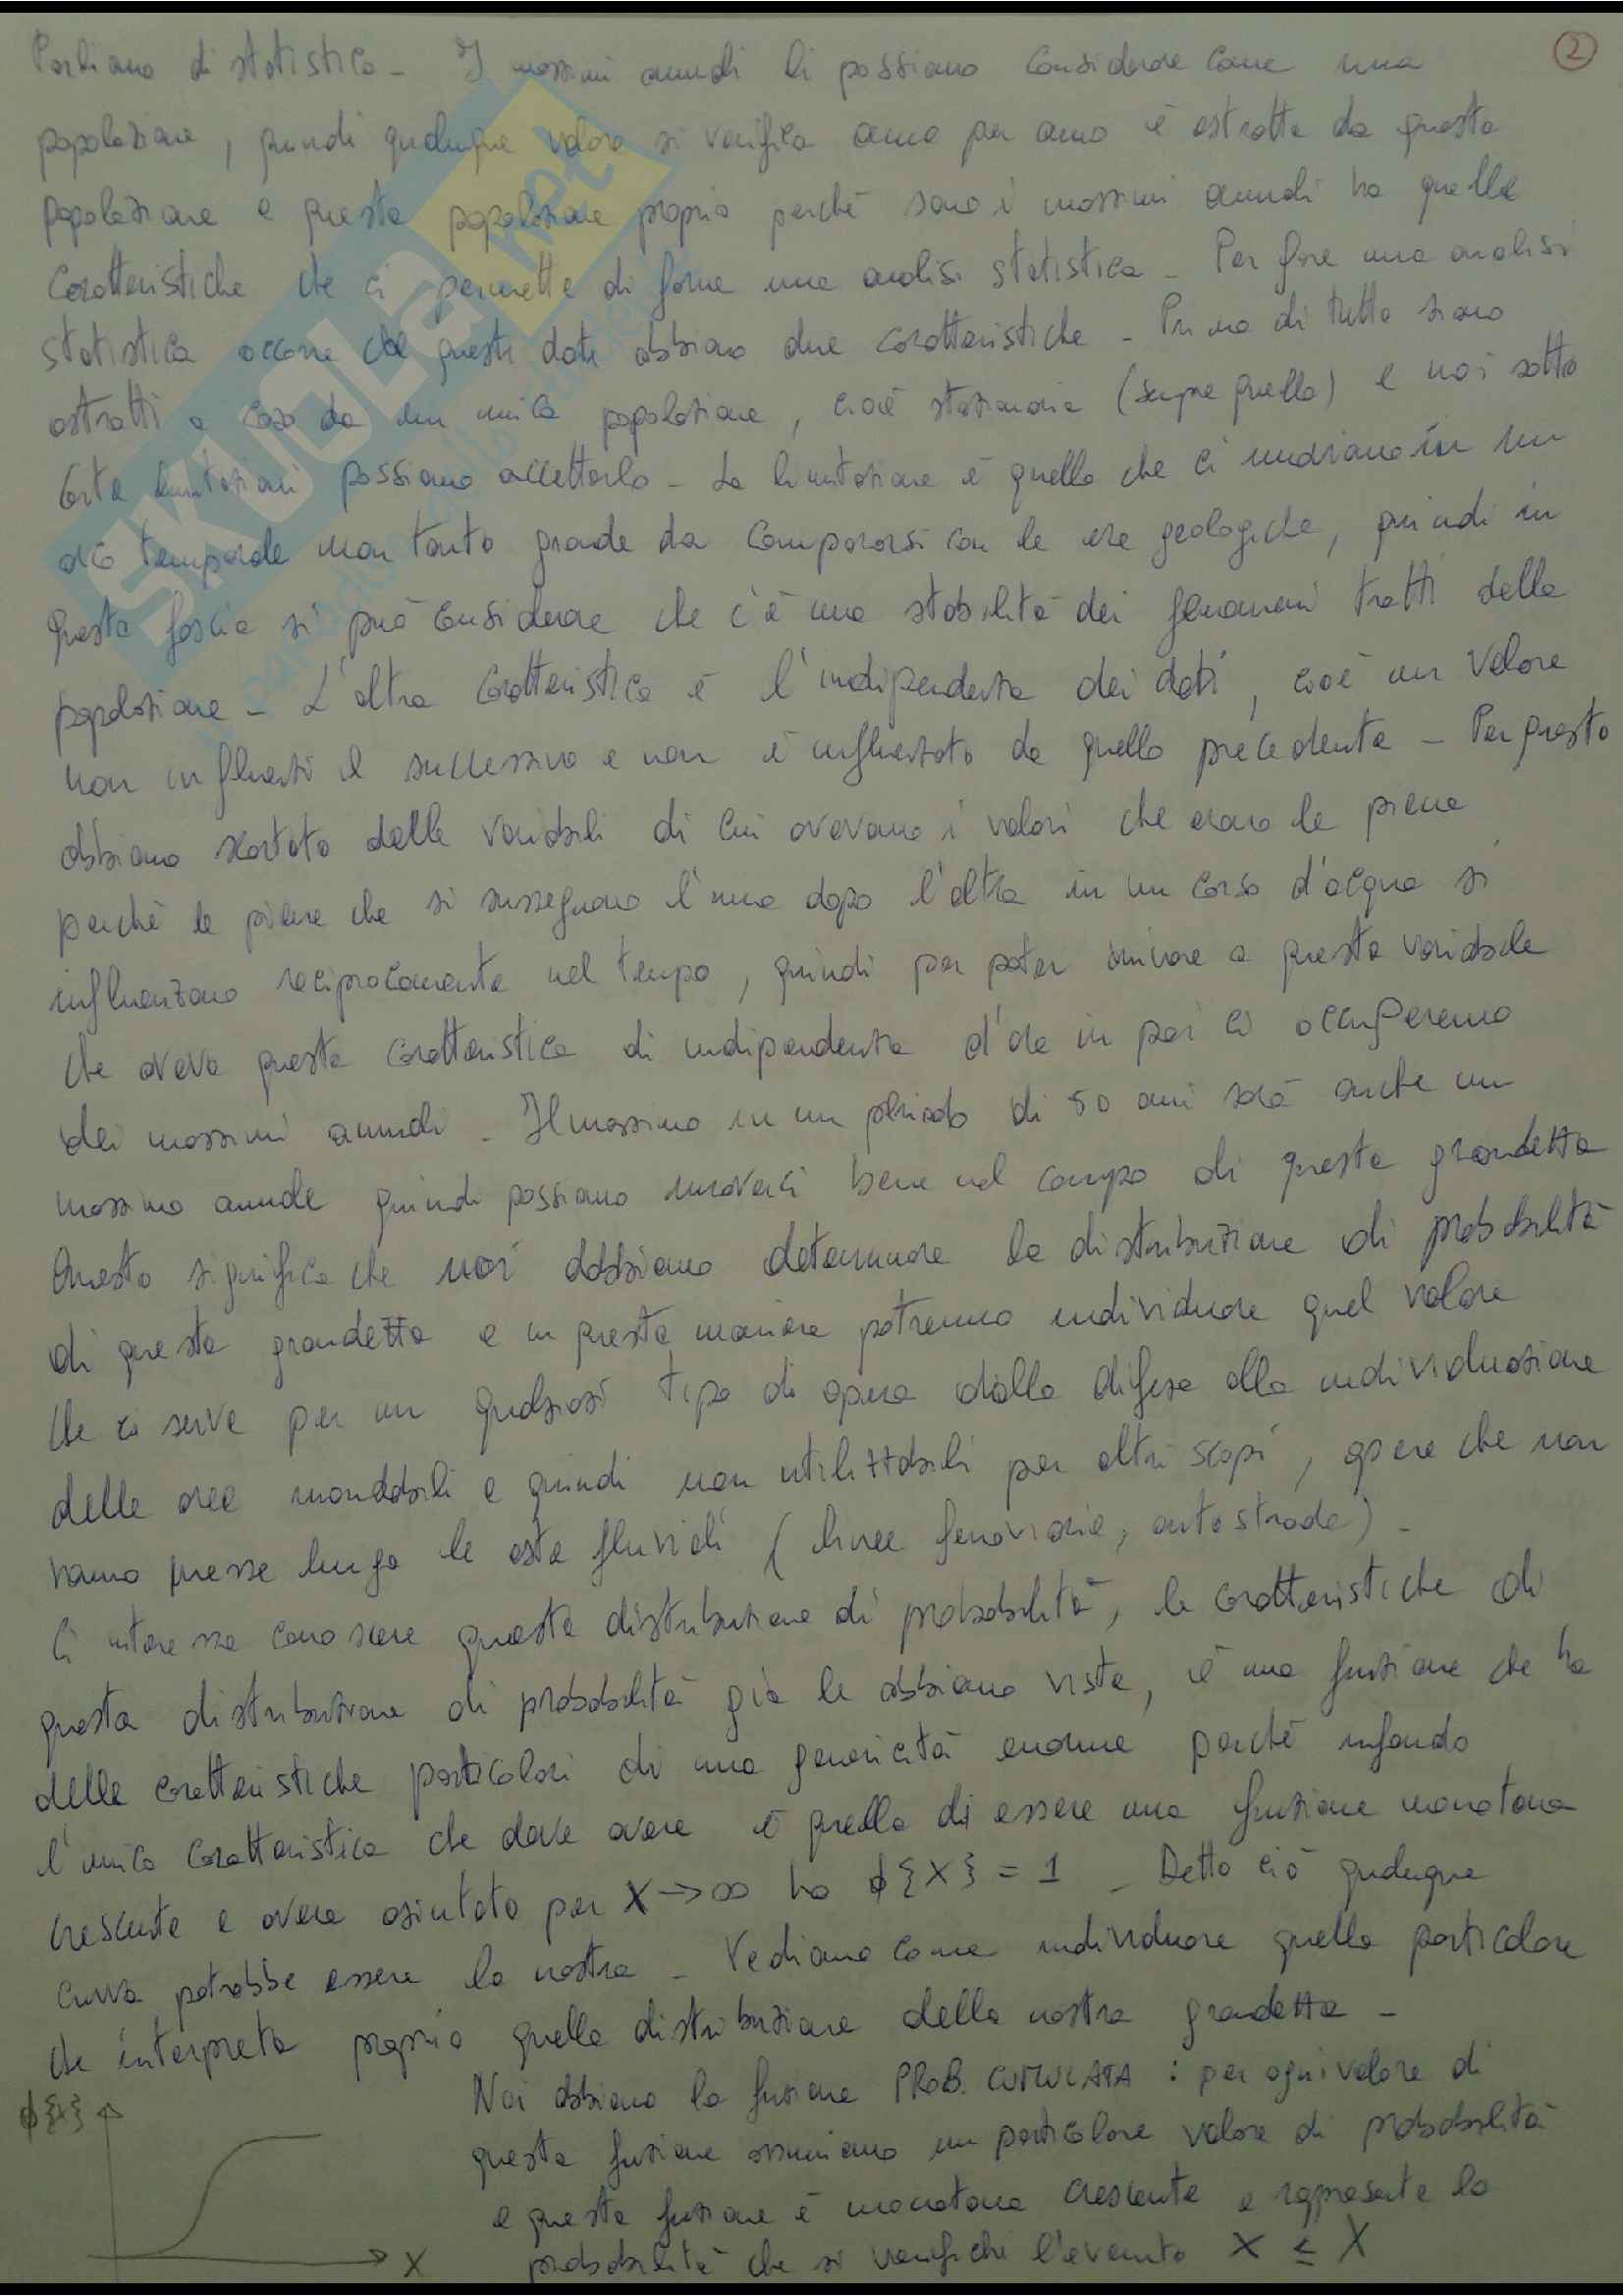 2
Parliamo di statistica - I massimi annuali li possiamo considerare come una
popolazione, quindi qualunque valore si verifica anno per anno è estratto da questa
popolazione e questa popolazione proprio perché sono i massimi annuali ha quelle
caratteristiche che ci permette di farne una analisi statistica - Per fare una analisi
statistica occorre che questi dati abbiano due caratteristiche - Prima di tutto siano
estratti a caso da un unica popolazione, cioè stazionaria (sempre quella) e noi sotto
certe limitazioni possiamo accettarlo - La limitazione è quella che ci muoviamo in un
arco temporale non tanto grande da compararsi con le ere geologiche, quindi in
questa fascia si può considerare che c'è una stabilità dei fenomeni tratti della
popolazione - L'altra caratteristica è l'indipendenza dei dati, cioè un valore
non influenzi il successivo e non è influenzato da quello precedente - Per questo
abbiamo scartato delle variabili di cui avevamo i valori che erano le piene
perché le piene che si susseguono l'una dopo l'altra in un corso d'acqua si
influenzano reciprocamente nel tempo, quindi per poter arrivare a questa variabile
che aveva questa caratteristica di indipendenza d'ora in poi ci occuperemo
dei massimi annuali - Il massimo in un periodo di 50 anni sarà anche un
massimo annuale quindi possiamo muoverci bene nel campo di questa grandezza
Questo significa che noi dobbiamo determinare la distribuzione di probabilità
di questa grandezza e in questa maniera potremo individuare quel valore
che ci serve per un qualsiasi tipo di opera dalla difesa alla individuazione
delle aree inondabili e quindi non utilizzabili per altri scopi, opere che non
vanno messe lungo le aste fluviali (linee ferroviarie, autostrade) -
Ci interessa conoscere questa distribuzione di probabilità, le caratteristiche di
questa distribuzione di probabilità già le abbiamo viste, è una funzione che ha
delle caratteristiche particolari di una genericità enorme perché in fondo
l'unica caratteristica che deve avere è quella di essere una funzione monotona
crescente e avere asintoto per X→∞ ha ϕ{X} = 1 - Detto ciò qualunque
curva potrebbe essere la nostra - Vediamo come individuare quella particolare
che interpreta proprio quella distribuzione della nostra grandezza -
Noi abbiamo la funzione PROB. CUMULATA : per ogni valore di
questa funzione assumiamo un particolare valore di probabilità
e questa funzione è monotona crescente e rappresenta la
probabilità che si verifichi l'evento x ≤ X
ϕ{x}
X
SKUOLA.net